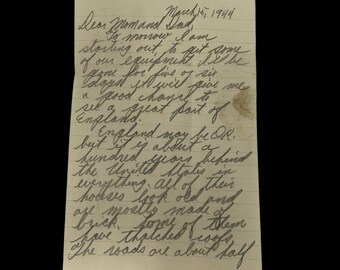 March 15, 1944
Dear Mom and Dad,
To morrow I am
starting out to git some
of our equipment. I'll be
gone for five or six
days. It will give me
a good chance to
see a great part of
England.
England may be O.K.
but it is about a
hundred years behind
the United States in
everything. All of their
houses look old and
are mostly made of
brick. Some of them
have thatched roofs.
The roads are about half